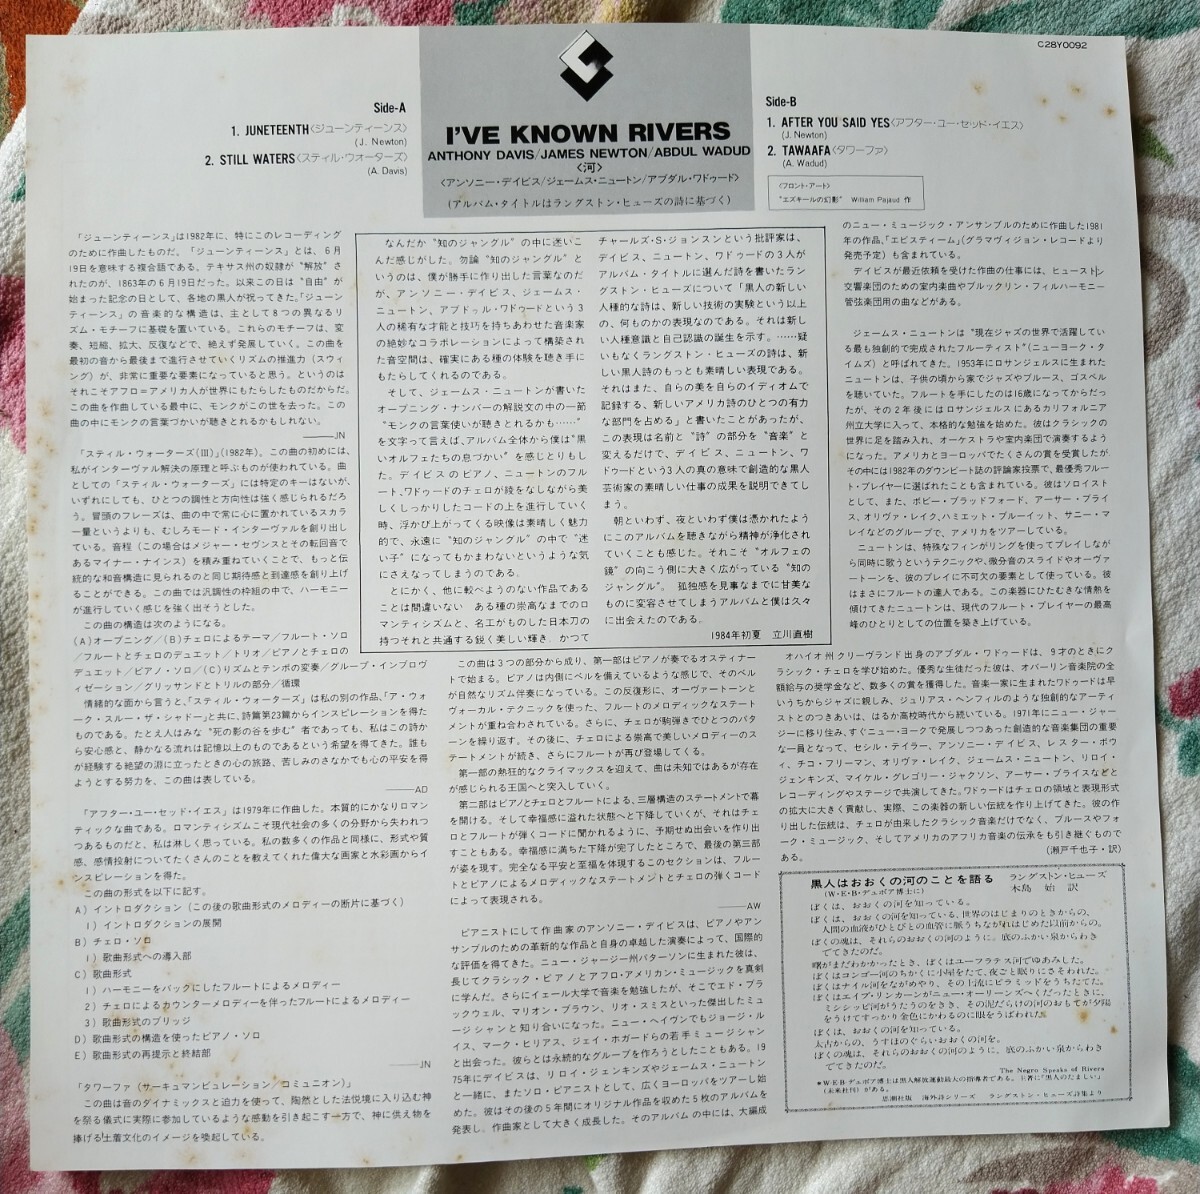 C28Y0092
Side-A
1. JUNETEENTH〈ジューンティーンス〉
(J. Newton)
2. STILL WATERS〈スティル・ウォーターズ〉
(A. Davis)
I'VE KNOWN RIVERS
ANTHONY DAVIS/JAMES NEWTON/ABDUL WADUD
〈河〉
〈アンソニー・デイビス/ジェームス・ニュートン/アブダル・ワドゥード〉
(アルバム・タイトルはラングストン・ヒューズの詩に基づく)
Side-B
1. AFTER YOU SAID YES〈アフター・ユー・セッド・イエス〉
(J. Newton)
2. TAWAAFA〈タワーファ〉
(A. Wadud)
〈フロント・アート〉
"エズキールの幻影" William Pajaud 作
「ジューンティーンス」は1982年に、特にこのレコーディング
のために作曲したものだ。「ジューンティーンス」とは、6月
19日を意味する複合語である、テキサス州の奴隷が"解放"さ
れたのが、1863年の6月19日だった。以来この日は"自由"が
始まった記念の日として、各地の黒人が祝ってきた。「ジューン
ティーンス」の音楽的な構造は、主として8つの異なるリ
ズム・モチーフに基礎を置いている。これらのモチーフは、変
奏、短縮、拡大、反復などで、絶えず発展していく。この曲を
最初の音から最後まで進行させていくリズムの推進力(スウィ
ング)が、非常に重要な要素になっていると思う。というのは
それこそアフロ=アメリカ人が世界にもたらしたものだからだ。
この曲を作曲している最中に、モンクがこの世を去った。この
曲の中にモンクの言葉づかいが聴きとれるかもしれない。
——JN
「スティル・ウォーターズ(III)」(1982年)。この曲の初めには、
私がインターヴァル解決の原理と呼ぶものが使われている。曲
としての「スティル・ウォーターズ」には特定のキーはないが、
いずれにしても、ひとつの調性と方向性は強く感じられるだろ
う。冒頭のフレーズは、曲の中で常に心に置かれているスカラ
ー量というよりも、むしろモード・インターヴァルを創り出し
ている。音程(この場合はメジャー・セヴンスとその転回音で
あるマイナー・ナインス)を積み重ねていくことで、もっと伝
統的な和音構造に見られるのと同じ期待感と到達感を創り上げ
ることができる。この曲では汎調性の枠組の中で、ハーモニー
が進行していく感じを強く出そうとした。
この曲の構造は次のようになる。
(A)オープニング/(B)チェロによるテーマ/フルート・ソロ
/フルートとチェロのデュエット/トリオ/ピアノとチェロの
デュエット/ピアノ・ソロ/(C)リズムとテンポの変奏/グループ・インプロヴ
ィゼーション/グリッサンドとトリルの部分/循環
情緒的な面から言うと、「スティル・ウォーターズ」は私の別の作品、「ア・ウォ
ーク・スルー・ザ・シャドー」と共に、詩篇第23篇からインスピレーションを得た
ものである。たとえ人はみな"死の影の谷を歩む"者であっても、私はこの詩か
ら安心感と、静かなる流れは記憶以上のものであるという希望を得てきた。誰も
が経験する絶望の淵に立ったときの心の旅路、苦しみのさなかでも心の平安を得
ようとする努力を、この曲は表している。
——AD
「アフター・ユー・セッド・イエス」は1979年に作曲した。本質的にかなりロマン
ティックな曲である。ロマンティシズムこそ現代社会の多くの分野から失われつ
つあるものだと、私は淋しく思っている。私の数多くの作品と同様に、形式や質
感、感情投射についてたくさんのことを教えてくれた偉大な画家と水彩画からイ
ンスピレーションを得た。
この曲の形式を以下に記す。
A)イントロダクション(この後の歌曲形式のメロディーの断片に基づく)
1)イントロダクションの展開
B)チェロ・ソロ
1)歌曲形式への導入部
C)歌曲形式
1)ハーモニーをバックにしたフルートによるメロディー
2)チェロによるカウンターメロディーを伴ったフルートによるメロディー
3)歌曲形式のブリッジ
D)歌曲形式の構造を使ったピアノ・ソロ
E)歌曲形式の再提示と終結部
——JN
「タワーファ(サーキュマンビュレーション/コミュニオン)」
この曲は音のダイナミックスと迫力を使って、陶然とした法悦境に入り込む神
を祭る儀式に実際に参加しているような感動を引き起こす一方で、神に供え物を
捧げる土着文化のイメージを喚起している。
なんだか"知のジャングル"の中に迷いこ
んだ感じがした。勿論"知のジャングル"と
いうのは、僕が勝手に作り出した言葉なのだ
が、アンソニー・デイビス、ジェームス・
ニュートン、アブドゥル・ワドゥードという3
人の稀有な才能と技巧を持ちあわせた音楽家
の絶妙なコラボレーションによって構築され
た音空間は、確実にある種の体験を聴き手に
もたらしてくれるのである。
そして、ジェームス・ニュートンが書いた
オープニング・ナンバーの解説文の中の一節
"モンクの言葉使いが聴きとれるかも……"
を文字って言えば、アルバム全体から僕は"黒
いオルフェたちの息づかい"を感じとりもし
た。デイビスのピアノ、ニュートンのフル
ート、ワドゥードのチェロが綾をなしながら美
しくしっかりしたコードの上を進行していく
時、浮かび上がってくる映像は素晴しく魅力
的で、永遠に"知のジャングル"の中で"迷
い子"になってもかまわないというような気
にさえなってしまうのである。
とにかく、他に較べようのない作品である
ことは間違いない ある種の崇高なまでのロ
マンティシズムと、名工がものした日本刀の
持つそれと共通する鋭く美しい輝き. かつて
チャールズ・S・ジョンスンという批評家は、
デイビス、ニュートン、ワドゥードの3人が
アルバム・タイトルに選んだ詩を書いたラン
グストン・ヒューズについて「黒人の新しい
人種的な詩は、新しい技術の実験という以上
の、何ものかの表現なのである。それは新し
い人種意識と自己認識の誕生を示す。……疑
いもなくラングストン・ヒューズの詩は、新
しい黒人詩のもっとも素晴しい表現である。
それはまた、自らの美を自らのイディオムで
記録する、新しいアメリカ詩のひとつの有力
な部門を占める」と書いたことがあったが、
この表現は名前と"詩"の部分を"音楽"と
変えるだけで、デイビス、ニュートン、ワ
ドゥードという3人の真の意味で創造的な黒人
芸術家の素晴しい仕事の成果を説明できてし
まう。
朝といわず、夜といわず僕は憑かれたよう
にこのアルバムを聴きながら精神が浄化され
ていくことも感じた。それこそ"オルフェの
鏡"の向こう側に大きく広がっている"知の
ジャングル"。孤独感を見事なまでに甘美な
ものに変容させてしまうアルバムと僕は久々
に出会えたのである。
1984年初夏 立川直樹
この曲は3つの部分から成り、第一部はピアノが奏でるオスティナー
トで始まる。ピアノは内側にベルを備えているような感じで、そのベル
が自然なリズム伴奏になっている。この反復形に、オーヴァートーンと
ヴォーカル・テクニックを使った、フルートのメロディックなステート
メントが重ね合わされている。さらに、チェロが駒弾きでひとつのパタ
ーンを繰り返す。その後に、チェロによる崇高で美しいメロディーのス
テートメントが続き、さらにフルートが再び登場してくる。
第一部の熱狂的なクライマックスを迎えて、曲は未知ではあるが存在
が感じられる王国へと突入していく。
第二部はピアノとチェロとフルートによる、三層構造のステートメントで幕
を開ける。そして幸福感に溢れた状態へと下降していくが、それはチェ
ロとフルートが弾くコードに聞かれるように、予期せぬ出会いを作り出
すこともある。幸福感に満ちた下降が完了したところで、最後の第三部
が姿を現す。完全なる平安と至福を体現するこのセクションは、フルー
トとピアノによるメロディックなステートメントとチェロの弾くコード
によって表現される。
——AW
ピアニストにして作曲家のアンソニー・デイビスは、ピアノやアン
サンブルのための革新的な作品と自身の卓越した演奏によって、国際的
な評価を得てきた。ニュー・ジャージー州パターソンに生まれた彼は、
長じてクラシック・ピアノとアフロ・アメリカン・ミュージックを真剣
に学んだ。さらにイェール大学で音楽を勉強したが、そこでエド・ブラ
ックウェル、マリオン・ブラウン、リオ・スミスといった傑出したミュ
ージシャンと知り合いになった。ニュー・ヘイヴンでもジョージ・ル
イス、マーク・ヒリアス、ジェイ・ホガードらの若手ミュージシャン
と出会った。彼らとは永続的なグループを作ろうとしたこともある。19
75年にデイビスは、リロイ・ジェンキンズやジェームス・ニュートン
と一緒に、またソロ・ピアニストとして、広くヨーロッパをツアーし始
めた。彼はその後の5年間にオリジナル作品を収めた5枚のアルバムを
発表し、作曲家として大きく成長した。そのアルバムの中には、大編成
のニュー・ミュージック・アンサンブルのために作曲した1981
年の作品、「エピスティーム」(グラマヴィジョン・レコードより
発売予定)も含まれている。
デイビスが最近依頼を受けた作曲の仕事には、ヒューストン
交響楽団のための室内楽曲やブルックリン・フィルハーモニー
管弦楽団用の曲などがある。
ジェームス・ニュートンは"現在ジャズの世界で活躍してい
る最も独創的で完成されたフルーティスト"(ニューヨーク・タ
イムズ)と呼ばれてきた。1953年にロサンジェルスに生まれた
ニュートンは、子供の頃から家でジャズやブルース、ゴスペル
を聴いていた。フルートを手にしたのは16歳になってからだっ
たが、その2年後にはロサンジェルスにあるカリフォルニア
州立大学に入って、本格的な勉強を始めた。彼はクラシックの
世界に足を踏み入れ、オーケストラや室内楽団で演奏するよう
になった。アメリカとヨーロッパでたくさんの賞を受賞したが、
その中には1982年のダウンビート誌の評論家投票で、最優秀フルー
ト・プレイヤーに選ばれたことも含まれている。彼はソロイスト
として、また、ボビー・ブラッドフォード、アーサー・ブライ
ス、オリヴァ・レイク、ハミエット・ブルーイット、サニー・マ
レイなどのグループで、アメリカをツアーしている。
ニュートンは、特殊なフィンガリングを使ってプレイしなが
ら同時に歌うというテクニックや、微分音のスライドやオーヴァ
ートーンを、彼のプレイに不可欠の要素として使っている。彼
はまさにフルートの達人である。この楽器にひたむきな情熱を
傾けてきたニュートンは、現代のフルート・プレイヤーの最高
峰のひとりとしての位置を築き上げている。
オハイオ州クリーヴランド出身のアブダル・ワドゥードは、9才のときにク
ラシック・チェロを学び始めた。優秀な生徒だった彼は、オバーリン音楽院の全
額給与の奨学金など、数多くの賞を獲得した。音楽一家に生まれたワドゥードは早
いうちからジャズに親しみ、ジュリアス・ヘンフィルのような独創的なアーティ
ストとのつきあいは、はるか高校時代から続いている。1971年にニュー・ジャー
ジーに移り住み、すぐニュー・ヨークで発展しつつあった創造的な音楽集団の重要
な一員となって、セシル・テイラー、アンソニー・デイビス、レスター・ボウ
ィ、チコ・フリーマン、オリヴァ・レイク、ジェームス・ニュートン、リロイ・
ジェンキンズ、マイケル・グレゴリー・ジャクソン、アーサー・ブライスなどと
レコーディングやステージで共演してきた。ワドゥードはチェロの領域と表現形式
の拡大に大きく貢献し、実際、この楽器の新しい伝統を作り上げてきた。彼の作
り出した伝統は、チェロが由来したクラシック音楽だけでなく、ブルースやフォ
ーク・ミュージック、そしてアメリカのアフリカ音楽の伝承をも引き継ぐもので
ある。
(瀬戸千也子・訳)
黒人はおおくの河のことを語る
(W・E・B・デュボア博士に)
ラングストン・ヒューズ
木島 始 訳
ぼくは、おおくの河を知っている。
ぼくは、おおくの河を知っている、世界のはじまりのときからの、
人間の血液がひとびとの血管に脈うちながれはじめた以前からの。
ぼくの魂は、それらのおおくの河のように。底のふかい泉からわき
でてきたのだ。
曙がまだわかかったとき、ぼくはユーフラテス河でゆあみした。
ぼくはコンゴー河のちかくに小屋をたて、夜ごと眠りにさそわれた。
ぼくはナイル河をながめやり、その上流にピラミッドをうちたてた。
ぼくはエイブ・リンカーンがニュー・オーリーンズへくだったときに、
ミシシッピ河がうたうのをきき、その泥だらけの河のおもてが夕陽
をうけてすっかり金色にかわるのに眼をうばわれた。
ぼくは、おおくの河を知っている。
太古からの、うすほのぐらいおおくの河を。
ぼくの魂は、それらのおおくの河のように、底のふかい泉からわき
でてきたのだ。
The Negro Speaks of Rivers
＊W・E・Bデュボア博士は黒人解放運動最大の指導者である。主著に「黒人のたましい」
(未来社刊)がある。
思潮社版 海外詩シリーズ ラングストン・ヒューズ詩集より